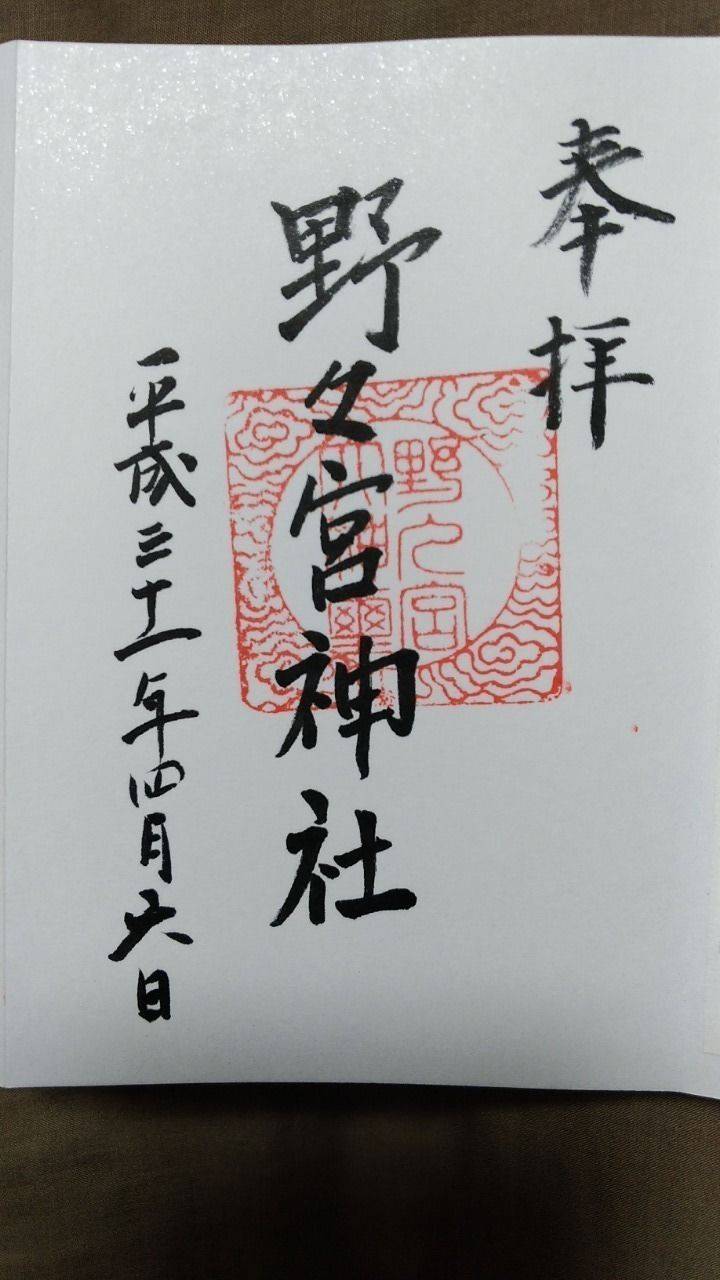 奉拝
野々宮神社
平成三十一年四月六日